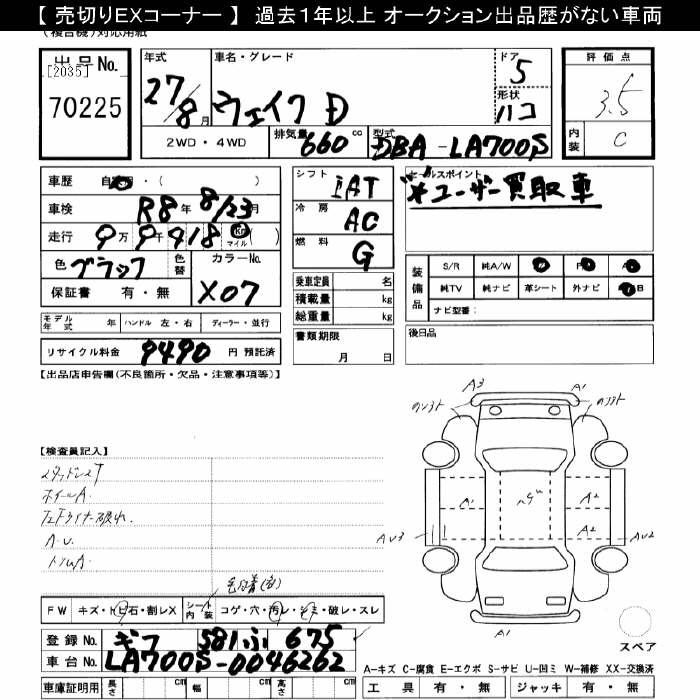 【 売切りEXコーナー 】 過去1年以上 オークション出品歴がない車両
(複合機)対応用紙
出品No.
[2035]
70225
年式
27/8月
車名・グレード
ウェイク D
ドア
5
形状
ハコ
評価点
3.5
内装
C
2WD・4WD
排気量 660 cc
型式 DBA-LA700S
車歴 自家用・( )
車検 R8年 8/23月
走行 9万9千918 Km マイル ( )
色 ブラック
色替
カラーNo.
X07
保証書 有・無
シフト
IAT
冷房
AC
燃料
G
乗車定員 名
積載量 kg
総重量 kg
書類期限
月 日
セールスポイント
※ユーザー買取車
装備品
S/R
純A/W
純TV
純ナビ
革シート
外ナビ
B
ナビ型番:
後日品
モデル年式 年
ハンドル 左・右
ディーラー・並行
リサイクル料金 9490 円 預託済
【出品店申告欄(不良箇所・欠品・注意事項等)】
【検査員記入】
スタッドレスT
ホイールA.
左Fライナー破れ.
A.U.
トリムA
毛付着(白)
FW キズ・トビ石・割レX
シート内装 コゲ・穴・汚レ・シミ・破レ・スレ
登録No. ギフ 581ふ 675
車台No. LA700S-0046262
車庫証明用 長さ cm 幅 cm 高さ cm
A3
A1
A1
A2
A2
AU3
AU2
A1
スペア
A-キズ C-腐食 E-エクボ S-サビ U-凹ミ W-補修 XX-交換済
工具 有・無 ジャッキ 有・無